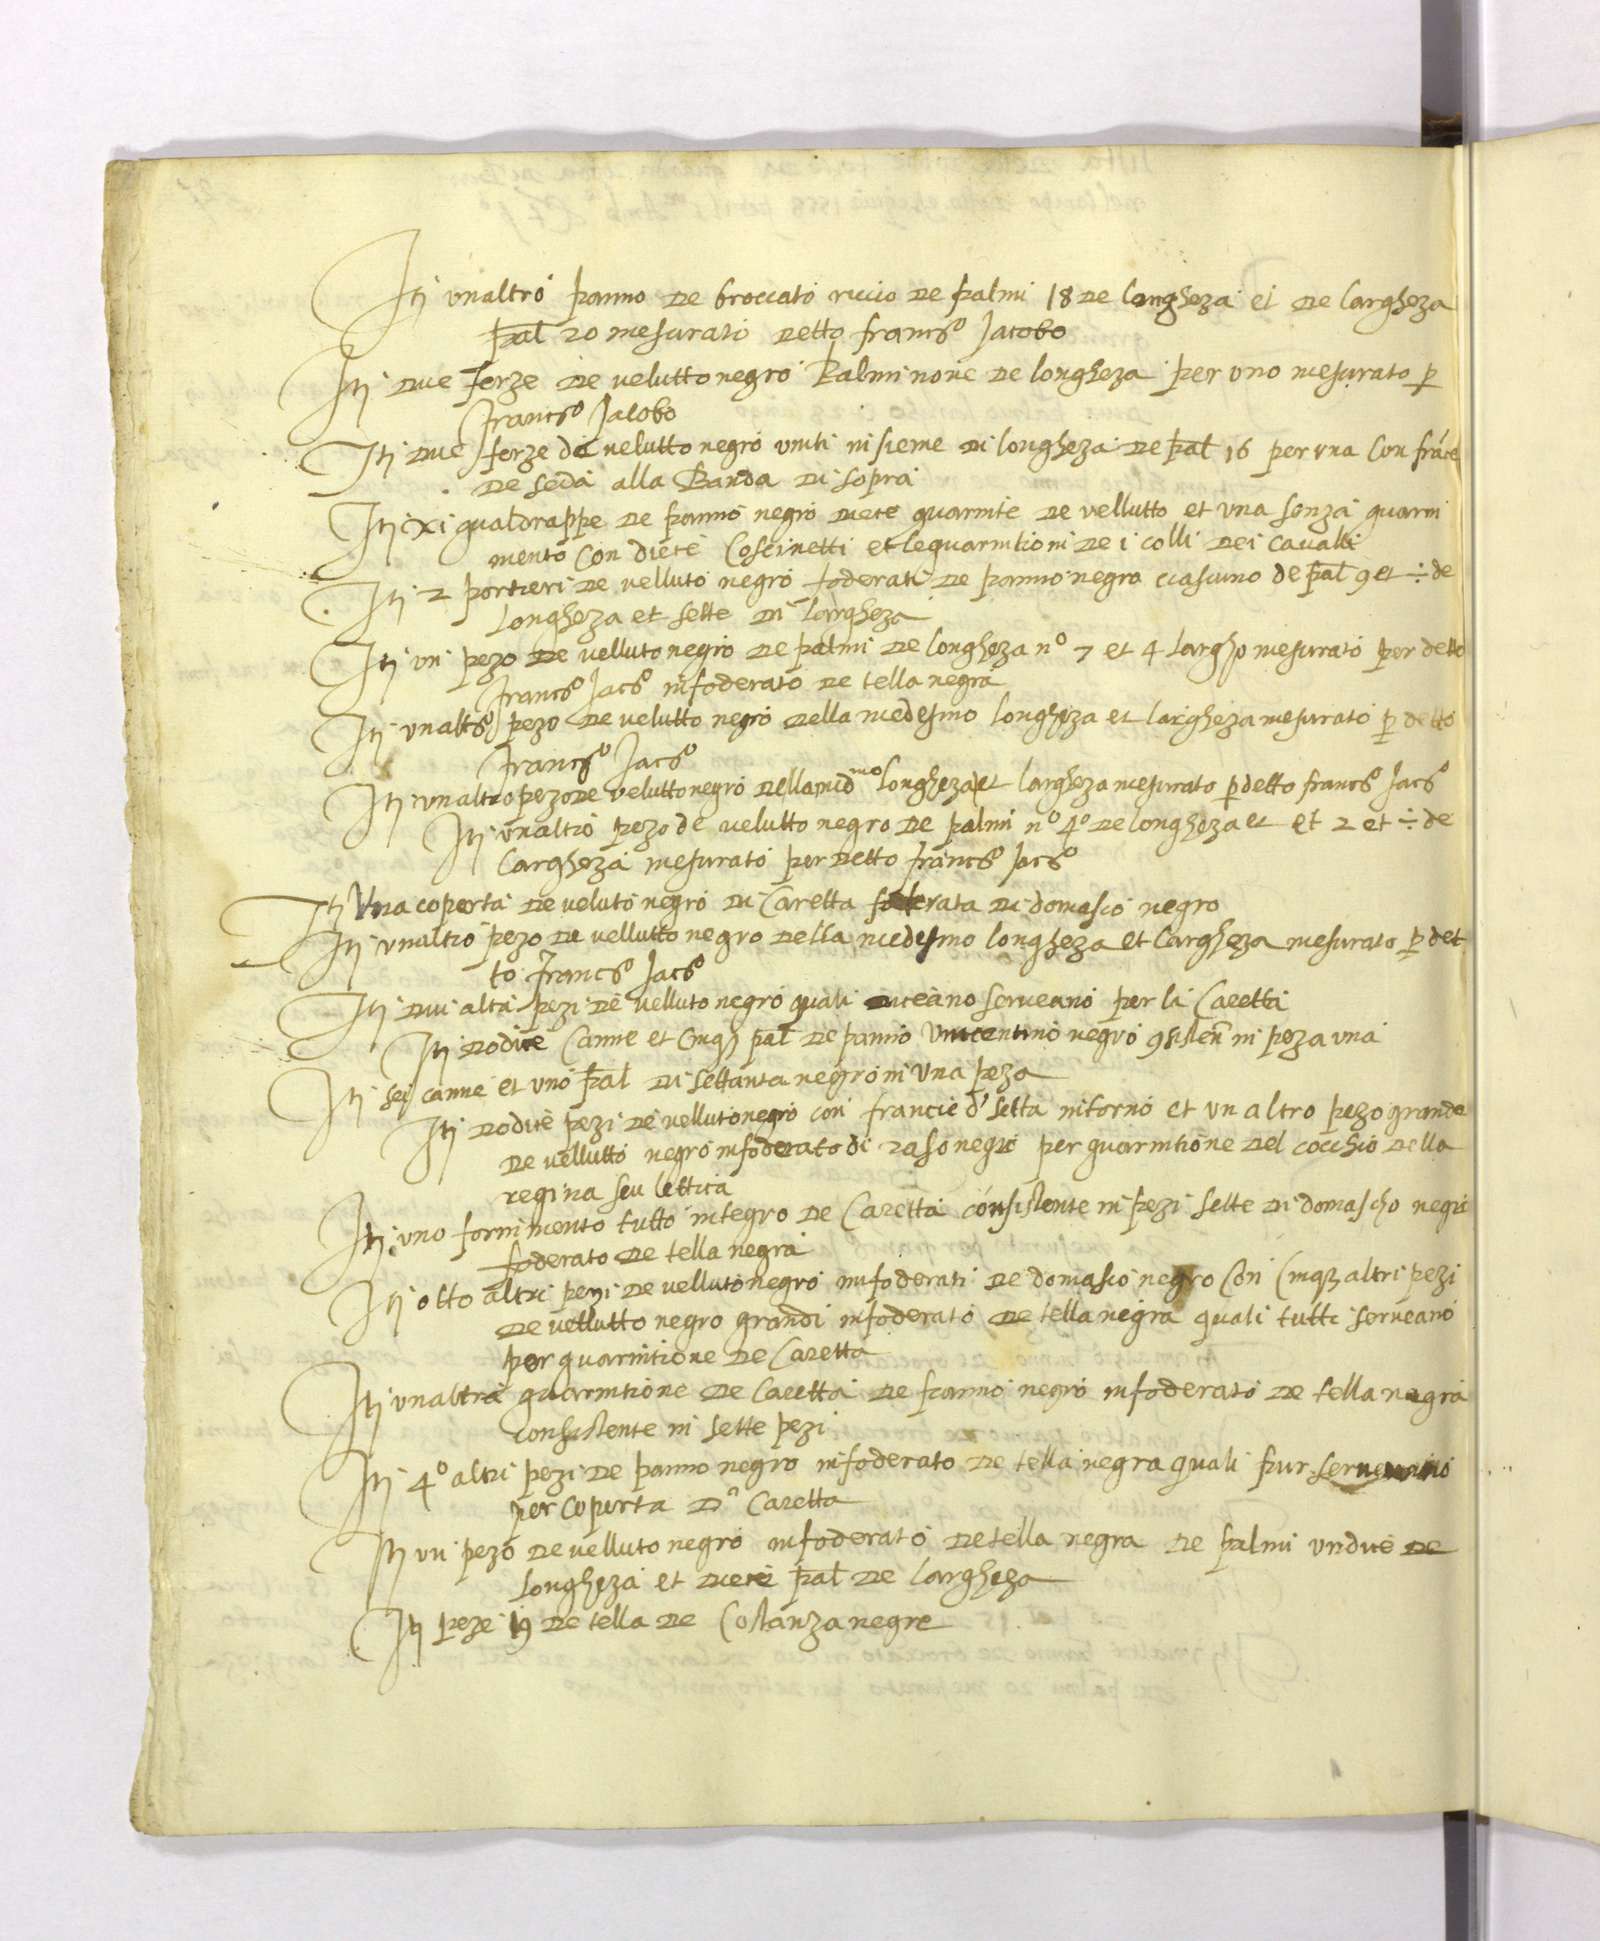 Itȷ unaltro panno de broccato riccio de palmi 18 de longheza et de largheza
pal 20 mesurato detto francº Jacobo
Itȷ due ferze de velutto negro Palmi nove de longheza per uno mesurato p
francº Jacobo
Itȷ due ferze de velutto negro uniti insieme di longheza de pal 16 per una con france
de seda alla Banda di sopra
Itȷ xi gualdrappe de panno negro diece guarnite de vellutto et una senza guarni
mento con diece Coscinetti et le guarnitioni de i colli dei cavalli
Itȷ 2 portieri de velluto negro foderati de panno negro ciascuno de pal 9 et ÷ de
longheza et sette di largheza
Itȷ un pezo de velluto negro de palmi de longheza nº 7 et 4 largho mesurato per detto
francº Jacº infoderato de tella negra
Itȷ unaltº pezo de velutto negro della medesmo longheza et largheza mesurato p detto
francº Jacº
Itȷ unaltro pezo de velutto negro della md mo longheza et largheza mesurato p detto francº Jacº
Itȷ unaltro pezo de velutto negro de palmi nº 4º de longheza et et 2 et ÷ de
largheza mesurato per detto francº Jacº
Itȷ Una coperta de veluto negro di Caretta foderata di domasco negro
Itȷ unaltro pezo de vellutto negro della medesmo longheza et largheza mesurato p det
to francº Jacº
Itȷ dui altri pezi de velluto negro quali diceano serveano per la Caretta
Itȷ dodice Canne et Cinqȝ pal de panno Vincentino negro in peza una
Itȷ sei canne et uno pal di settanta negro in una peza
Itȷ dodice pezi de velluto negro con francie d' setta intorno et un altro pezo grande
de vellutto negro infoderato di raso negro per guarnitione del cocchio della
regina seu lettica
Itȷ uno fornimento tutto integro de Caretta consistente in pezi sette di domascho negro
foderato de tella negra
Itȷ otto altri pezi de velluto negro infoderati de domasco negro con Cinqȝ altri pezi
de vellutto negro grandi infoderato de tella negra quali tutti serveano
per guarnitione de Caretta
Itȷ unaltra guarnitione de Caretta de panno negro infoderato de tella negra
consistente in sette pezi
Itȷ 4º altri pezi de panno negro infoderato de tella negra quali pur serveano
per coperta Dª Caretta
Itȷ un pezo de velluto negro infoderato de tella negra de palmi undice de
longheza et diece pal de largheza
Itȷ peze 19 de tella de Costanza negre